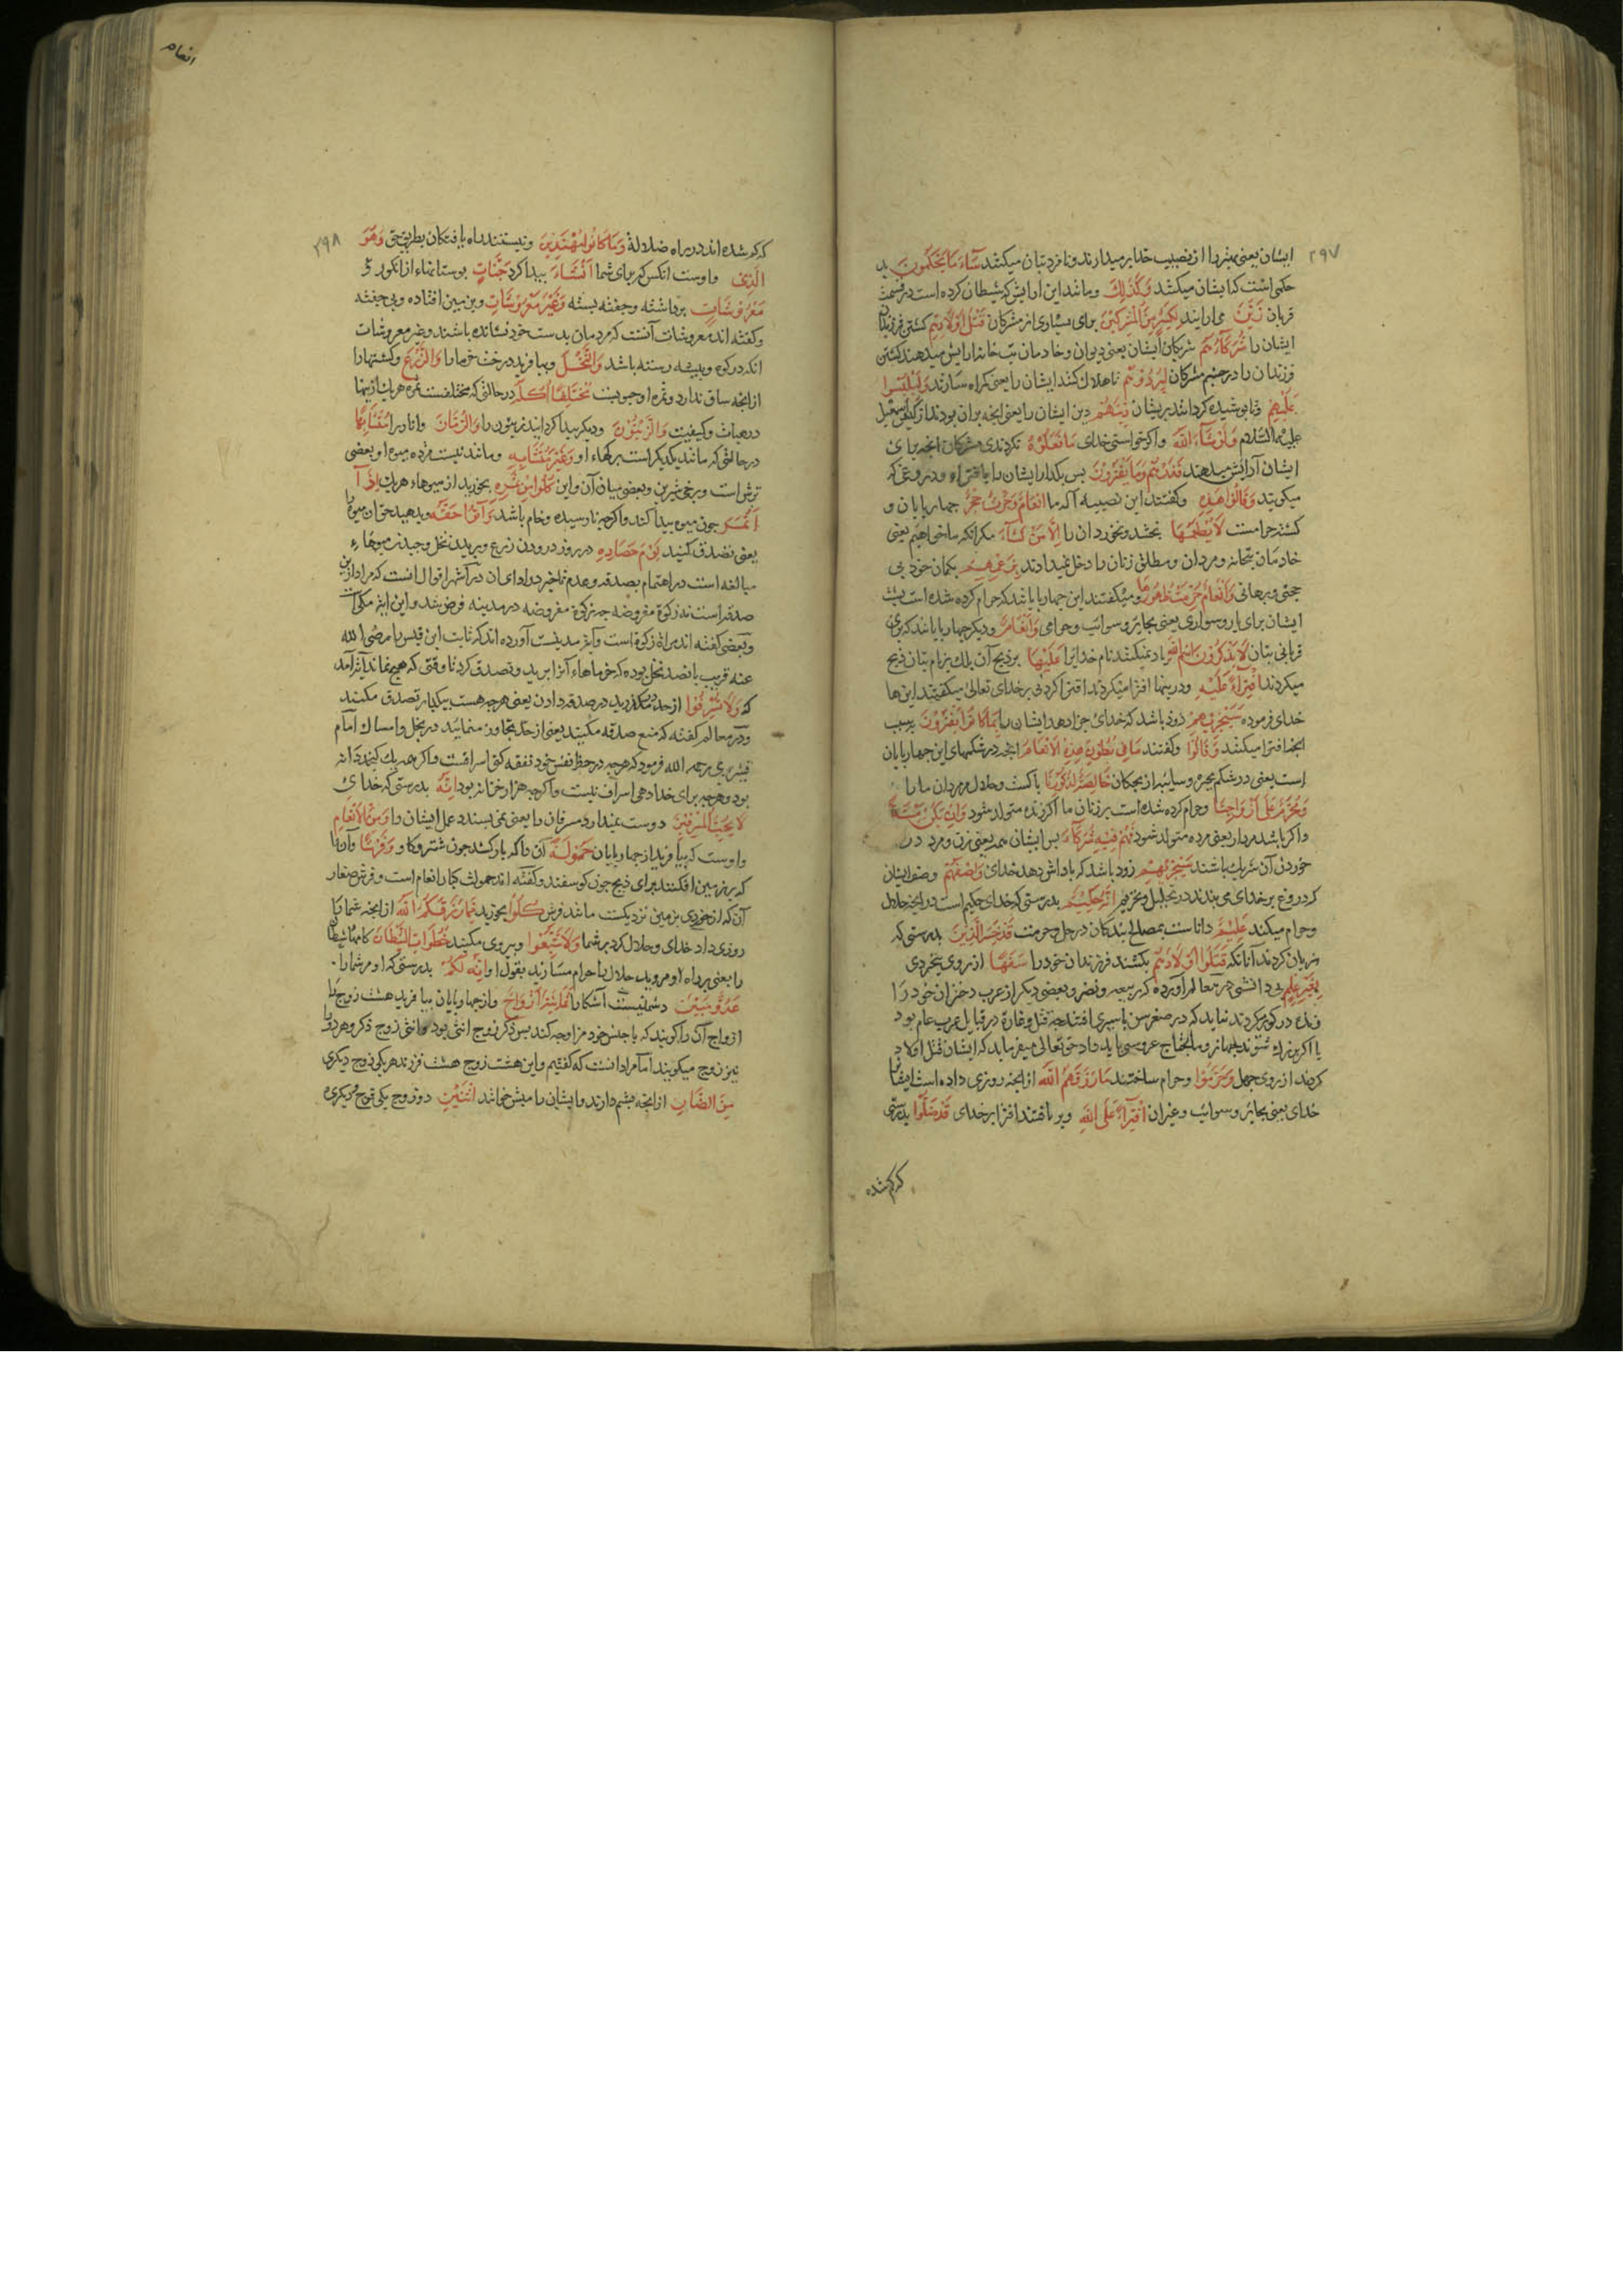 ۲۹۷
ایشان یعنی بهره را از نصیب خدا بر میدارند و نامزد بتان میکنند سَآءَ مَا يَحْكُمُونَ بد
حکمی است که ایشان میکنند وَكَذٰلِكَ و مانند این آرایش که شیطان کرده است در قسمت
قربان زَيَّنَ می آرایند لِكَثِيرٍ مِنَ الْمُشْرِكِينَ برای بسیاری از مشرکان قَتْلَ اَوْلَادِهِمْ کشتن فرزندان
ایشان را شُرَكَاؤُهُمْ شریکان ایشان یعنی دیوان و خادمان بت خانه آرایش میدهند کشتن
فرزندان را در چشم مشرکان لِيُرْدُوهُمْ تا هلاک کنند ایشان را یعنی گمراه سازند وَلِيَلْبِسُوا
عَلَيْهِمْ و تا پوشیده گردانند بریشان دِينَهُمْ دین ایشان را یعنی انچه بران بودند از کیش اسمعیل
علیه السّلام وَلَوْ شَآءَ اللّٰهُ و اگر خواستی خدای مَا فَعَلُوهُ نکردندی مشرکان انچه برای
ایشان آرایش میدهند فَذَرْهُمْ وَمَا يَفْتَرُونَ پس بگذار ایشان را با افترا و دروغی که
میگویند وَقَالُوا هٰذِهِ و گفتند این نصیبه آلهه ما اَنْعَامٌ وَحَرْثٌ حِجْرٌ چهارپایان و
کشته حرامست لَا يَطْعَمُهَا نچشد و نخورد آن را اِلَّا مَنْ نَشَآءُ مگر انکه ما خواهیم یعنی
خادمان بتخانه و مردان و مطلق زنان را دخل نمیدادند بِزَعْمِهِمْ بگمان خود بی
حجتی و برهانی وَاَنْعَامٌ حُرِّمَتْ ظُهُورُهَا و میگفتند این چهارپایانند که حرام کرده شده است پشت
ایشان برای بار و سواری یعنی بحایر و سوایب و حوامی وَاَنْعَامٌ و دیگر چهارپایانند که برای
قربانی بتان لَا يَذْكُرُونَ اسْمَ اللّٰهِ یاد نمیکنند نام خدایرا عَلَيْهَا بر ذبح آن بلک بنام بتان ذبح
میکردند افْتِرَآءً عَلَيْهِ و درینها افترا میکردند افترا کردنی بر خدای تعالی میگفتند این ها
خدای فرموده سَيَجْزِيهِمْ زود باشد که خدای جزا دهد ایشان را بِمَا كَانُوا يَفْتَرُونَ بسبب
انچه افترا میکنند وَقَالُوا و گفتند مَا فِي بُطُونِ هٰذِهِ الْاَنْعَامِ انچه در شکمهای این چهارپایان
است یعنی در شکم بحیره و سایبه از بچگان خَالِصَةٌ لِذُكُورِنَا پاکست و حلال مردان ما را
وَمُحَرَّمٌ عَلٰى اَزْوَاجِنَا و حرام کرده شده است بر زنان ما اگر زنده متولد شود وَاِنْ يَكُنْ مَيْتَةً
و اگر باشد مردار یعنی مرده متولد شود فَهُمْ فِيهِ شُرَكَآءُ پس ایشان همه یعنی زن و مرد در
خوردن آن شریک باشند سَيَجْزِيهِمْ زود باشد که پاداش دهد خدای وَصْفَهُمْ وصف ایشان
که دروغ بر خدای می بندند در تحلیل و تحریم اِنَّهُ حَكِيمٌ بدرستی که خدای حکیم است در انچه حلال
و حرام میکند عَلِيمٌ داناست بمصالح بندگان در حل و حرمت قَدْ خَسِرَ الَّذِينَ بدرستی که
زیان کردند آنانکه قَتَلُوا اَوْلَادَهُمْ بکشتند فرزندان خود را سَفَهًا از روی بیخردی
بِغَيْرِ عِلْمٍ بی دانشی در معالم آورده که ربیعه و مضر و بعضی دیگر از عرب دختران خود را
زنده در گور کردند
یا اگر بزرگ شوند
کردند از روی جهل وَحَرَّمُوا و حرام ساختند مَا رَزَقَهُمُ اللّٰهُ از انچه روزی داده است ایشانرا
خدای یعنی بحایر و سوایب و غیر ان افْتِرَآءً عَلَى اللّٰهِ و بر بافتند افترا بر خدای قَدْ ضَلُّوا بدرستی
که گم شده
انعام
۲۹۸
که گم شده اند در راه ضلالة وَمَا كَانُوا مُهْتَدِينَ و نیستند راه یافتگان بطریق حق وَهُوَ
الَّذِى و اوست انکس که برای شما اَنْشَاَ پیدا کرد جَنَّاتٍ بوستانها از انگور و
مَعْرُوشَاتٍ برداشته و چفته بسته وَغَيْرَ مَعْرُوشَاتٍ و بزمین افتاده و بی چفته
و گفته اند معروشات آنست که مردمان بدست خود نشانده باشند و غیر معروشات
انکه در کوه و بیشه رسته باشد وَالنَّخْلَ و بیافرید درخت خرما را وَالزَّرْعَ و کشتها را
از انچه ساق ندارد مُخْتَلِفًا اُكُلُهُ در حالتی که مختلفست ثمره هر یک ازینها
در هیات و کیفیت وَالزَّيْتُونَ و دیگر پیدا گردانید زیتون را وَالرُّمَّانَ و انار را مُتَشَابِهًا
در حالتی که مانند یکدیگر است برگهاء او وَغَيْرَ مُتَشَابِهٍ و مانند نیست مزده میوه او بعضی
ترش است و برخی شیرین و بعضی میان آن و این كُلُوا مِنْ ثَمَرِهِ بخورید از میوهاء هر یک اِذَا
اَثْمَرَ چون میوه پیدا کند و اگرچه نارسیده و خام باشد وَآتُوا حَقَّهُ و بدهید حق ان میوه را
یعنی تصدق کنید يَوْمَ حَصَادِهِ در روز درودن زرع و بریدن نخل و چیدن میوهاء
مبالغه است در اهتمام بصدقه و عدم تاخیر در ادای ان در اشهر اقوال انست که مراد ازین
صدقه است نه زکوة مفروضه چه زکوة مفروضه در مدینه فرض شد و این ایه مکی است
و بعضی گفته اند مراد زکوة است آورده اند که ثابت ابن قیس را رضی الله
عنه قریب پانصد نخل بوده که خرماهاء آنرا ببرید و تصدق کرد تا وقتی که هیچ نماند
که وَلَا تُسْرِفُوا از حد مگذرید در صدقه دادن یعنی هرچه هست بیکبار تصدق مکنید
و در معالم گفته که منع صدقه مکنید یعنی از حد تجاوز منمایید در بخل و امساک امام
قشیری رحمه الله فرمود که هرچه در حظ نفس خود نفقه کنی اسرافست و اگر همه یک کنجد دانه
بود و هرچه برای خدا دهی اسراف نیست و اگرچه هزار خزانه بود اِنَّهُ بدرستی که خدای
لَا يُحِبُّ الْمُسْرِفِينَ دوست نمیدارد مسرفان را یعنی نمی پسندد عمل ایشان را وَمِنَ الْاَنْعَامِ
و اوست که بیافرید از چهارپایان حَمُولَةً آن را که بار کشد چون شتر و گاو وَفَرْشًا و آن را
که بر زمین افکنند برای ذبح چون گوسفند و گفته اند حمولت کبار انعام است و فرش صغار
آن که از خوردی بزمین نزدیکست مانند فرش كُلُوا بخورید مِمَّا رَزَقَكُمُ اللّٰهُ از انچه شما را
روزی داد خدای و حلال کرد بر شما وَلَا تَتَّبِعُوا و پیروی مکنید خُطُوَاتِ الشَّيْطَانِ گامهاء شیطان
را یعنی براه او مروید و حلال را حرام مسازید بقول او اِنَّهُ لَكُمْ بدرستی که او مر شما را
عَدُوٌّ مُبِينٌ دشمنیست آشکارا ثَمَانِيَةَ اَزْوَاجٍ و از چهارپایان بیافرید هشت زوج را
ازواج آن را گویند که با جنس خود مزاوجه کند پس ذکر زوج انثی بود و انثی زوج ذکر و هر دو را
نیز زوج میگویند اما مراد انست که گفتیم و این هشت زوج هشت فرزند هر یکی زوج دیگری
مِنَ الضَّاْنِ از انچه پشم دارند و ایشان را میش خوانند اثْنَيْنِ دو زوج یکی قوچ و دیگری